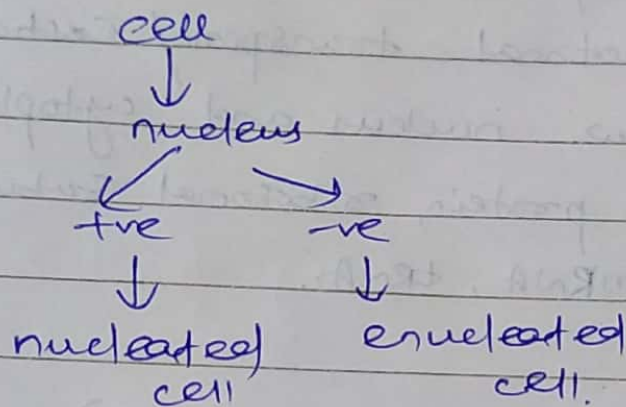 cell
nucleus
+ve -ve
nucleated enucleated
cell cell.